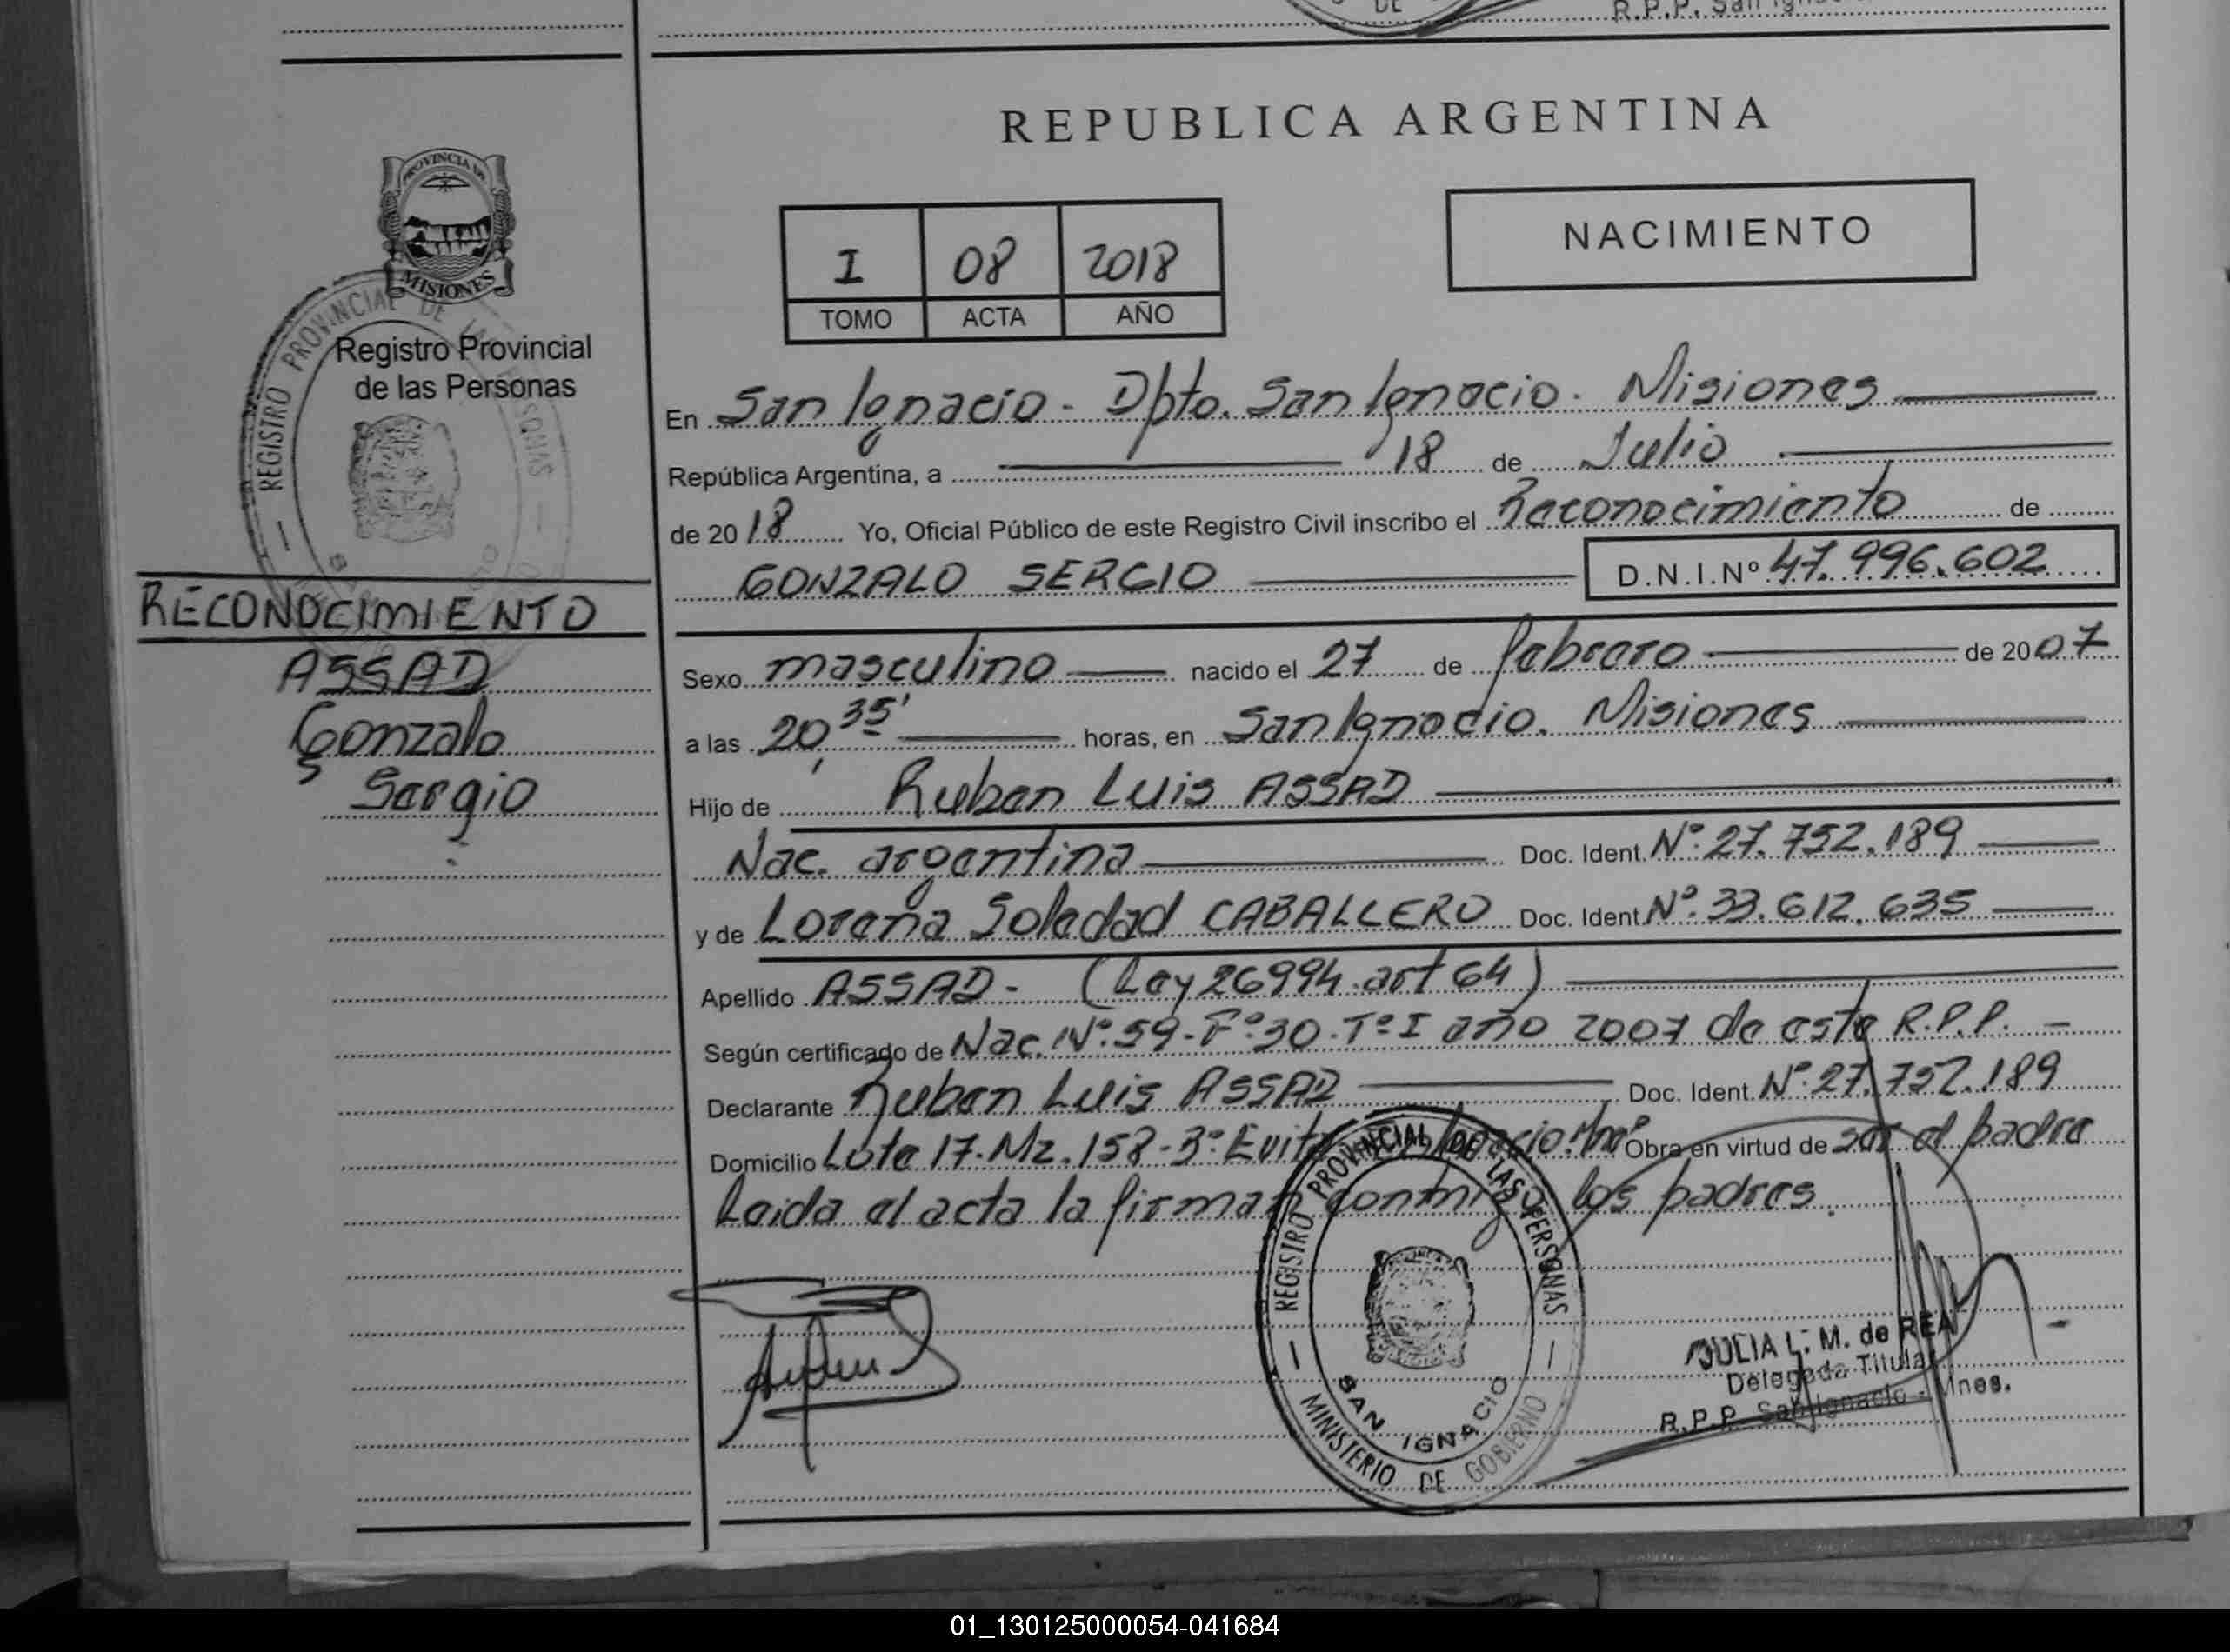 DE
R.P.P. San Igna
REPUBLICA ARGENTINA
NACIMIENTO
I 08 2018
TOMO ACTA AÑO
PROVINCIA DE
MISIONES
Registro Provincial
de las Personas
REGISTRO PROVINCIAL DE LAS PERSONAS
RECONOCIMIENTO
ASSAD
Gonzalo
Sergio
En San Ignacio - Dpto. San Ignacio. Misiones
República Argentina, a 18 de Julio
de 2018 Yo, Oficial Público de este Registro Civil inscribo el Reconocimiento de
GONZALO SERGIO D.N.I.Nº 47.996.602
Sexo masculino nacido el 27 de febrero de 2007
a las 20,35' horas, en San Ignacio. Misiones
Hijo de Ruben Luis ASSAD
Nac. argentina Doc. Ident. Nº 27.752.189
y de Lorena Soledad CABALLERO Doc. Ident. Nº 33.612.635
Apellido ASSAD - (Ley 26994 art 64)
Según certificado de Nac. Nº 59 - Fº 30 - Tº I año 2007 de este R.P.P. -
Declarante Ruben Luis ASSAD Doc. Ident. Nº 27.752.189
Domicilio Lote 17. Mz. 158 - Bº Evita Obra en virtud de ser el padre
Leida el acta la firman conmigo los padres.
REGISTRO PROVINCIAL DE LAS PERSONAS
SAN IGNACIO
MINISTERIO DE GOBIERNO
JULIA L. M. de REA
Delegada Titular
R.P.P. San Ignacio - Mnes.
01_130125000054-041684